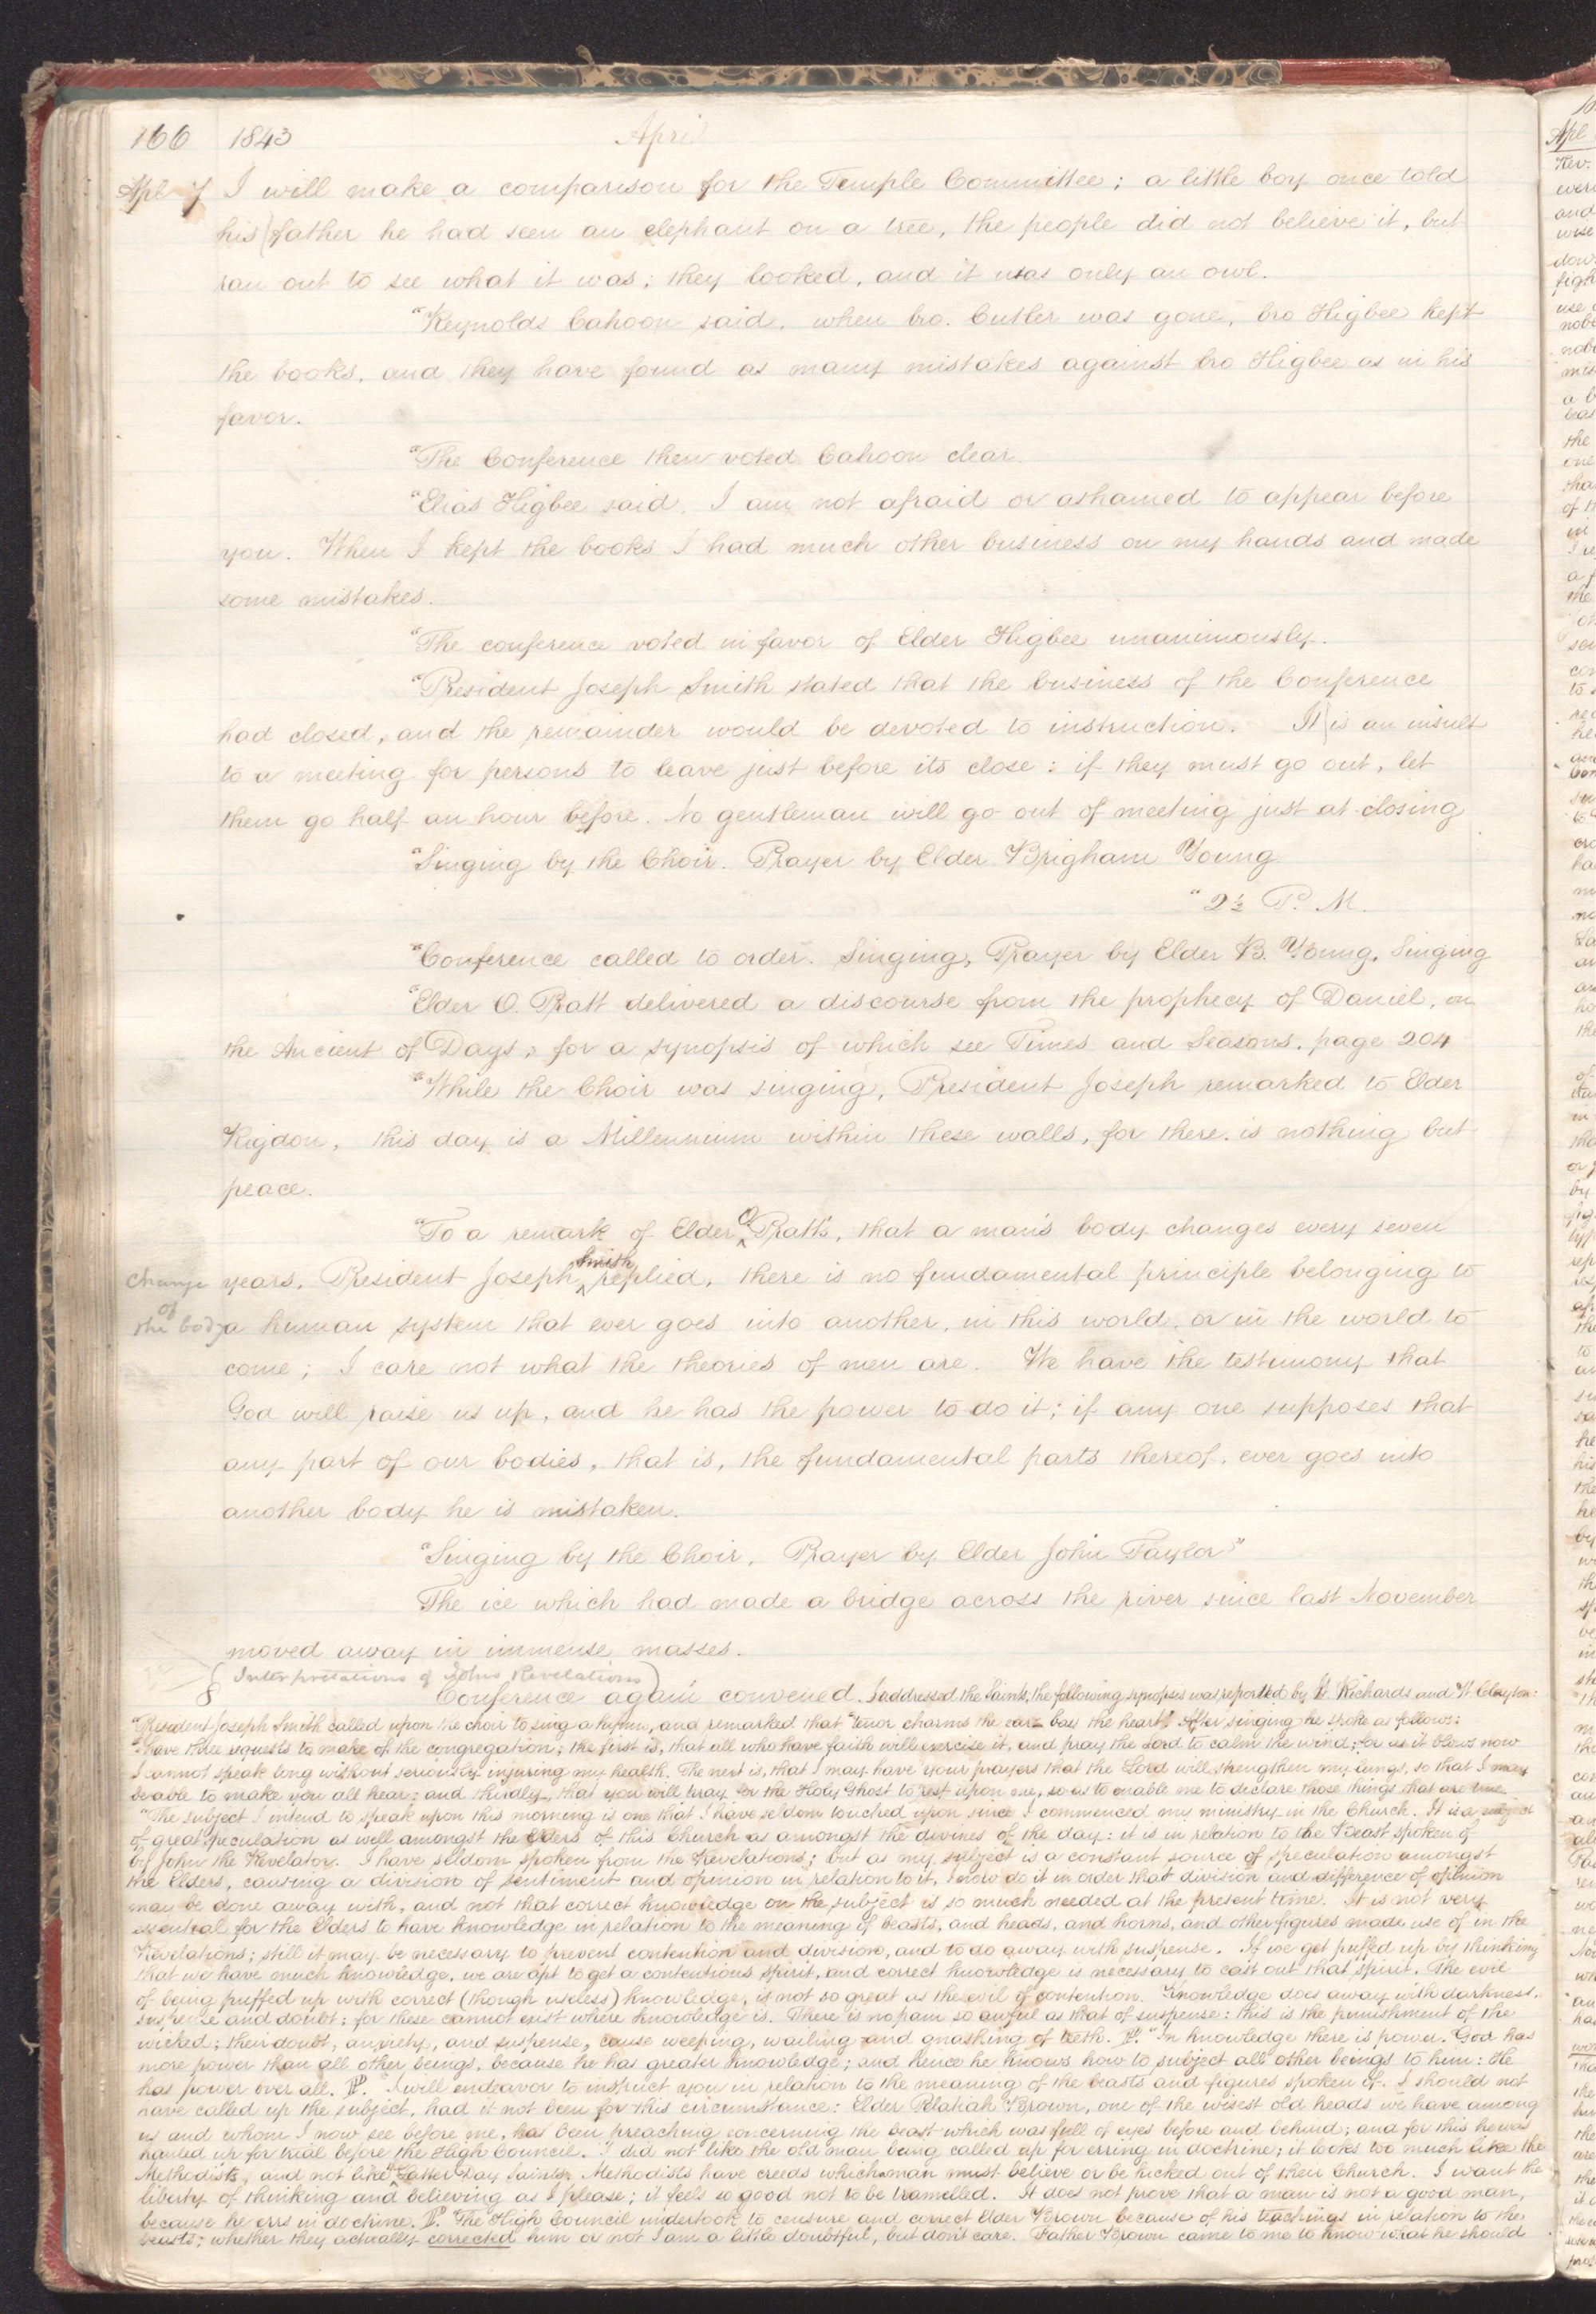 166 1843 April
Apl 7 I will make a comparison for the Temple Committee; a little boy once told
his father he had seen an elephant on a tree, the people did not believe it, but
ran out to see what it was; they looked, and it was only an owl.
"Reynolds Cahoon said, when bro. Cutler was gone, bro Higbee kept
the books, and they have found as many mistakes against bro Higbee as in his
favor.
"The Conference then voted Cahoon clear.
"Elias Higbee said, I am not afraid or ashamed to appear before
you. When I kept the books I had much other business on my hands and made
some mistakes.
"The conference voted in favor of Elder Higbee unanimously.
"President Joseph Smith stated that the business of the Conference
had closed, and the remainder would be devoted to instruction. It is an insult
to a meeting for persons to leave just before its close: if they must go out, let
them go half an hour before. No gentleman will go out of meeting just at closing
"Singing by the Choir. Prayer by Elder Brigham Young.
"2½ P. M.
"Conference called to order. Singing, Prayer by Elder B. Young. Singing
"Elder O. Pratt delivered a discourse from the prophecy of Daniel, on
the Ancient of Days; for a synopsis of which see Times and Seasons, page 204
"While the Choir was singing, President Joseph remarked to Elder
Rigdon, this day is a Millennium within these walls, for there is nothing but
peace.
"To a remark of Elder O. Pratt's, that a man's body changes every seven
change years, President Joseph Smith replied, there is no fundamental principle belonging to
of the body a human system that ever goes into another, in this world, or in the world to
come; I care not what the theories of men are. We have the testimony that
God will raise us up, and he has the power to do it; if any one supposes that
any part of our bodies, that is, the fundamental parts thereof, ever goes into
another body he is mistaken.
"Singing by the Choir, Prayer by Elder John Taylor"
The ice which had made a bridge across the river since last November
moved away in immense masses.
8 { Interpretations of Johns Revelations }
Conference again convened. I addressed the Saints, the following synopsis was reported by W Richards and W. Clayton:
"President Joseph Smith called upon the choir to sing a hymn, and remarked that "tenor charms the ear bass the heart." After singing he spoke as follows:
"I have three requests to make of the congregation; the first is, that all who have faith will exercise it, and pray the Lord to calm the wind; for as it blows now
I cannot speak long without seriously injuring my health. The next is, that I may have your prayers that the Lord will strengthen my lungs, so that I may
be able to make you all hear: and thirdly, that you will pray for the Holy Ghost to rest upon me, so as to enable me to declare those things that are true
"The subject I intend to speak upon this morning is one that I have seldom touched upon since I commenced my ministry in the Church. It is a subject
of great speculation as well amongst the Elders of this Church as amongst the divines of the day: it is in relation to the Beast spoken of
by John the Revelator. I have seldom spoken from the Revelations; but as my subject is a constant source of speculation amongst
the Elders, causing a division of sentiment and opinion in relation to it, I now do it in order that division and difference of opinion
may be done away with, and not that correct knowledge on the subject is so much needed at the present time. It is not very
essential for the Elders to have knowledge in relation to the meaning of beasts, and heads, and horns, and other figures made use of in the
Revelations; still it may be necessary to prevent contention and division, and to do away with suspense. If we get puffed up by thinking
that we have much knowledge, we are apt to get a contentious spirit, and correct knowledge is necessary to cast out that spirit. The evil
of being puffed up with correct (though useless) knowledge, is not so great as the evil of contention. Knowledge does away with darkness,
suspense and doubt; for these cannot exist where knowledge is. There is no pain so awful as that of suspense: this is the punishment of the
wicked; their doubt, anxiety, and suspense, cause weeping, wailing and gnashing of teeth. P. "In knowledge there is power. God has
more power than all other beings, because he has greater knowledge; and hence he knows how to subject all other beings to him: He
has power over all. P. I will endeavor to instruct you in relation to the meaning of the beasts and figures spoken of. I should not
have called up the subject, had it not been for this circumstance: Elder Pelatiah Brown, one of the wisest old heads we have among
us and whom I now see before me, has been preaching concerning the beast which was full of eyes before and behind; and for this he was
hauled up for trial before the High Council. I did not like the old man being called up for erring in doctrine; it looks too much like the
Methodists, and not like Latter Day Saints. Methodists have creeds which man must believe or be kicked out of their Church. I want the
liberty of thinking and believing as I please; it feels so good not to be tramelled. It does not prove that a man is not a good man,
because he errs in doctrine. P. The High Council undertook to censure and correct Elder Brown because of his teachings in relation to the
beasts; whether they actually corrected him or not I am a little doubtful, but don't care. Father Brown came to me to know what he should